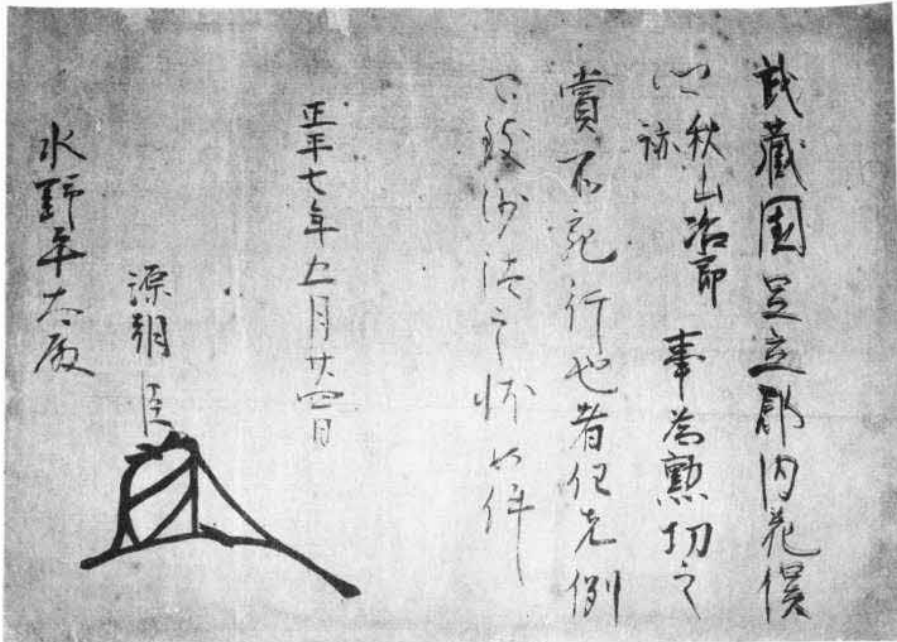 武藏國足立郡内花俣
郷 秋山治 跡 事為勲功之
賞所宛行也者任先例
可致沙汰之状如件
正平七年正月廿四日
源朝臣
水野平太殿